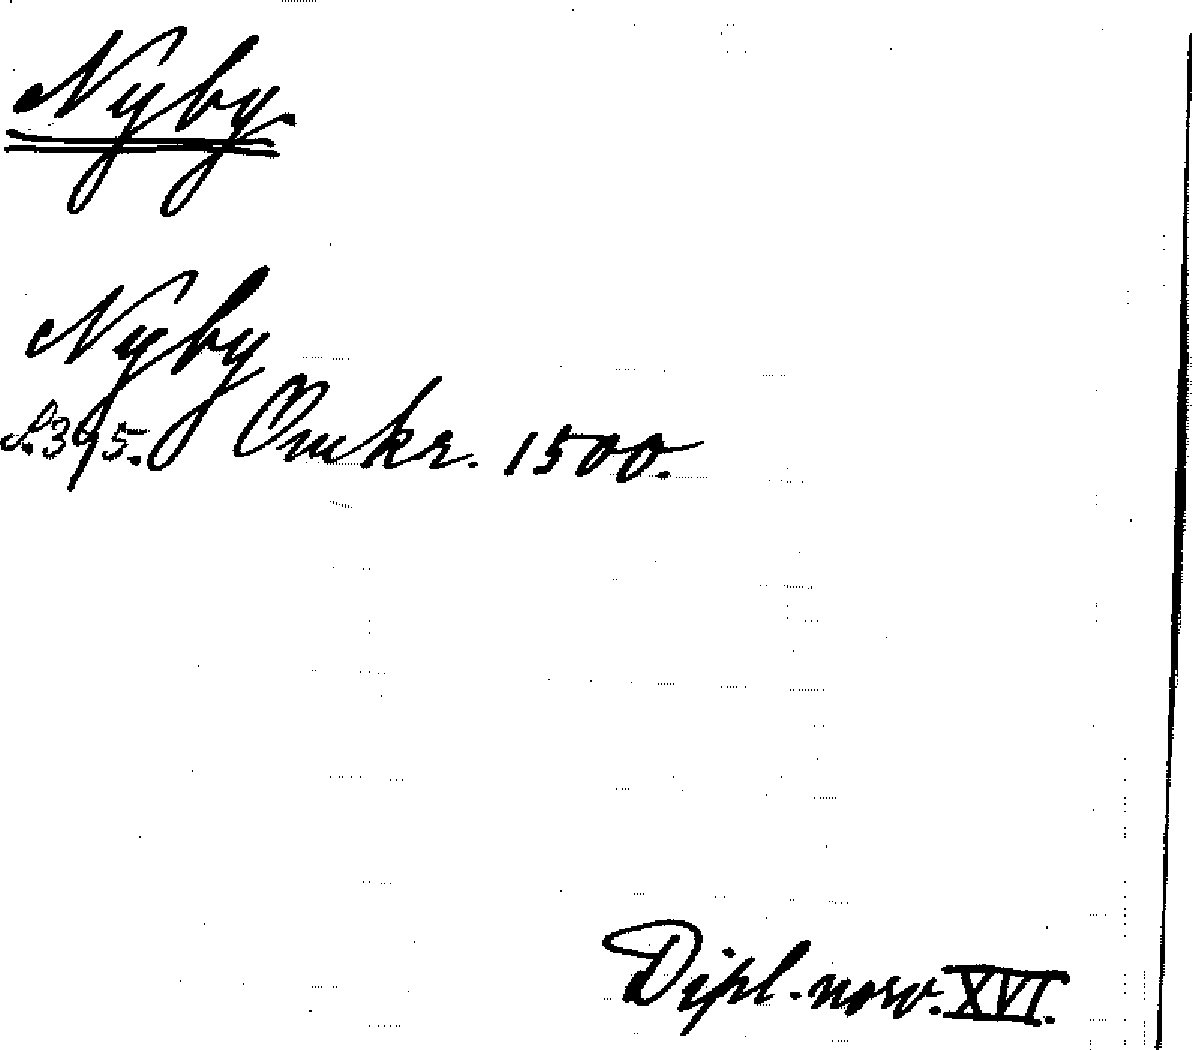 Nyby
Nyby
S. 395. Omkr. 1500.
Dipl. norv. XVI.